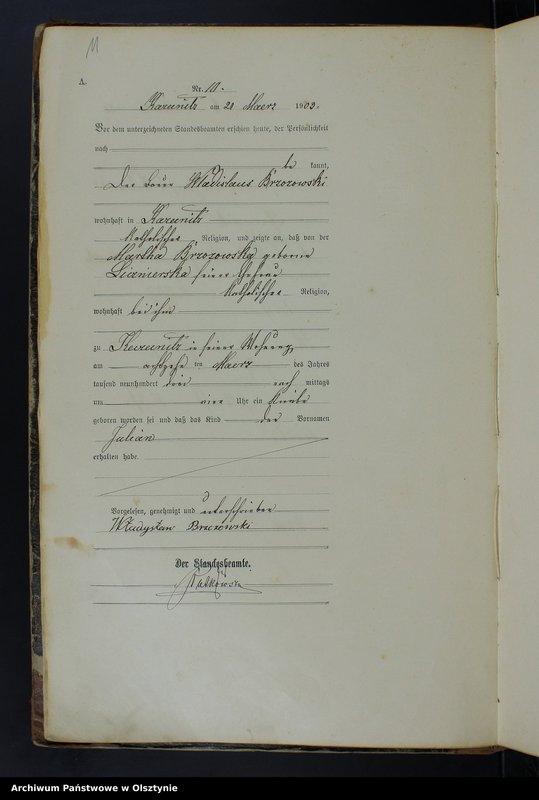 11
A.
Nr. 11.
Kazanitz am 21 Maerz 1903.
Vor dem unterzeichneten Standesbeamten erschien heute, der Persönlichkeit
nach
be kannt,
Der Bauer Wladislaus Brzozowski
wohnhaft in Kazanitz
Katholischer Religion, und zeigte an, daß von der
Martha Brzozowska geborene
Licznierska seiner Ehefrau
Katholischer Religion,
wohnhaft bei ihm
zu Kazanitz in seiner Wohnung
am achtzehn ten Maerz des Jahres
tausend neunhundert drei nach mittags
um vier Uhr ein Knabe
geboren worden sei und daß das Kind der Vornamen
Julian
erhalten habe.
Vorgelesen, genehmigt und unterschrieben
Władysław Brzozowski
Der Standesbeamte.
Archiwum Państwowe w Olsztynie